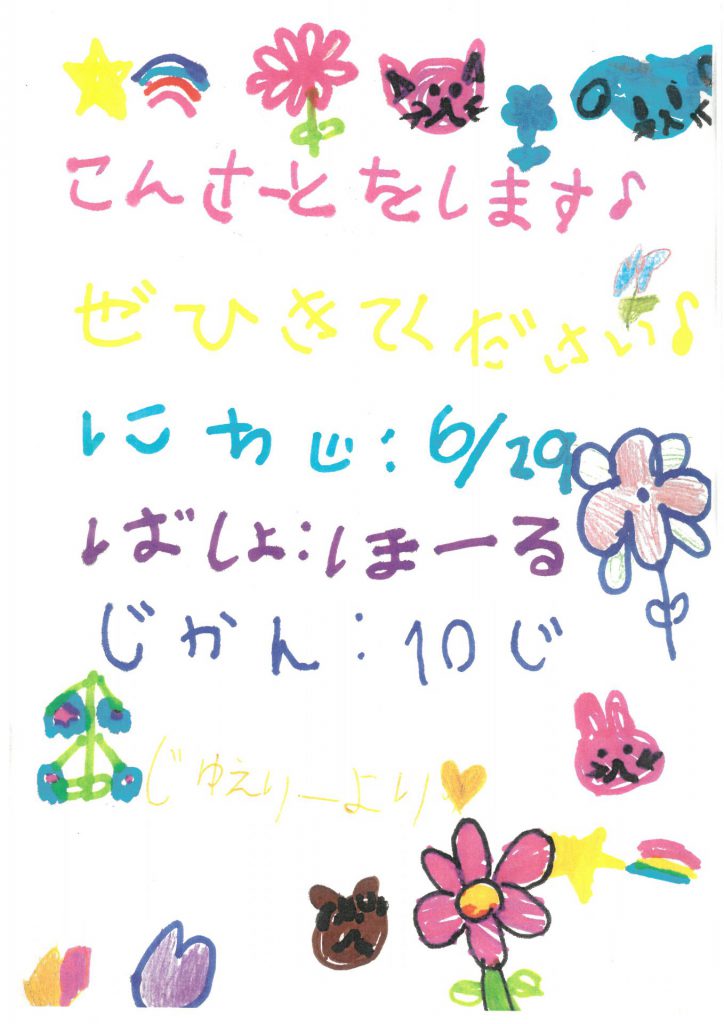 こんさーとをします♪
ぜひきてください♪
にちじ:6/29
ばしょ:ほーる
じかん:10じ
じゅえりーより